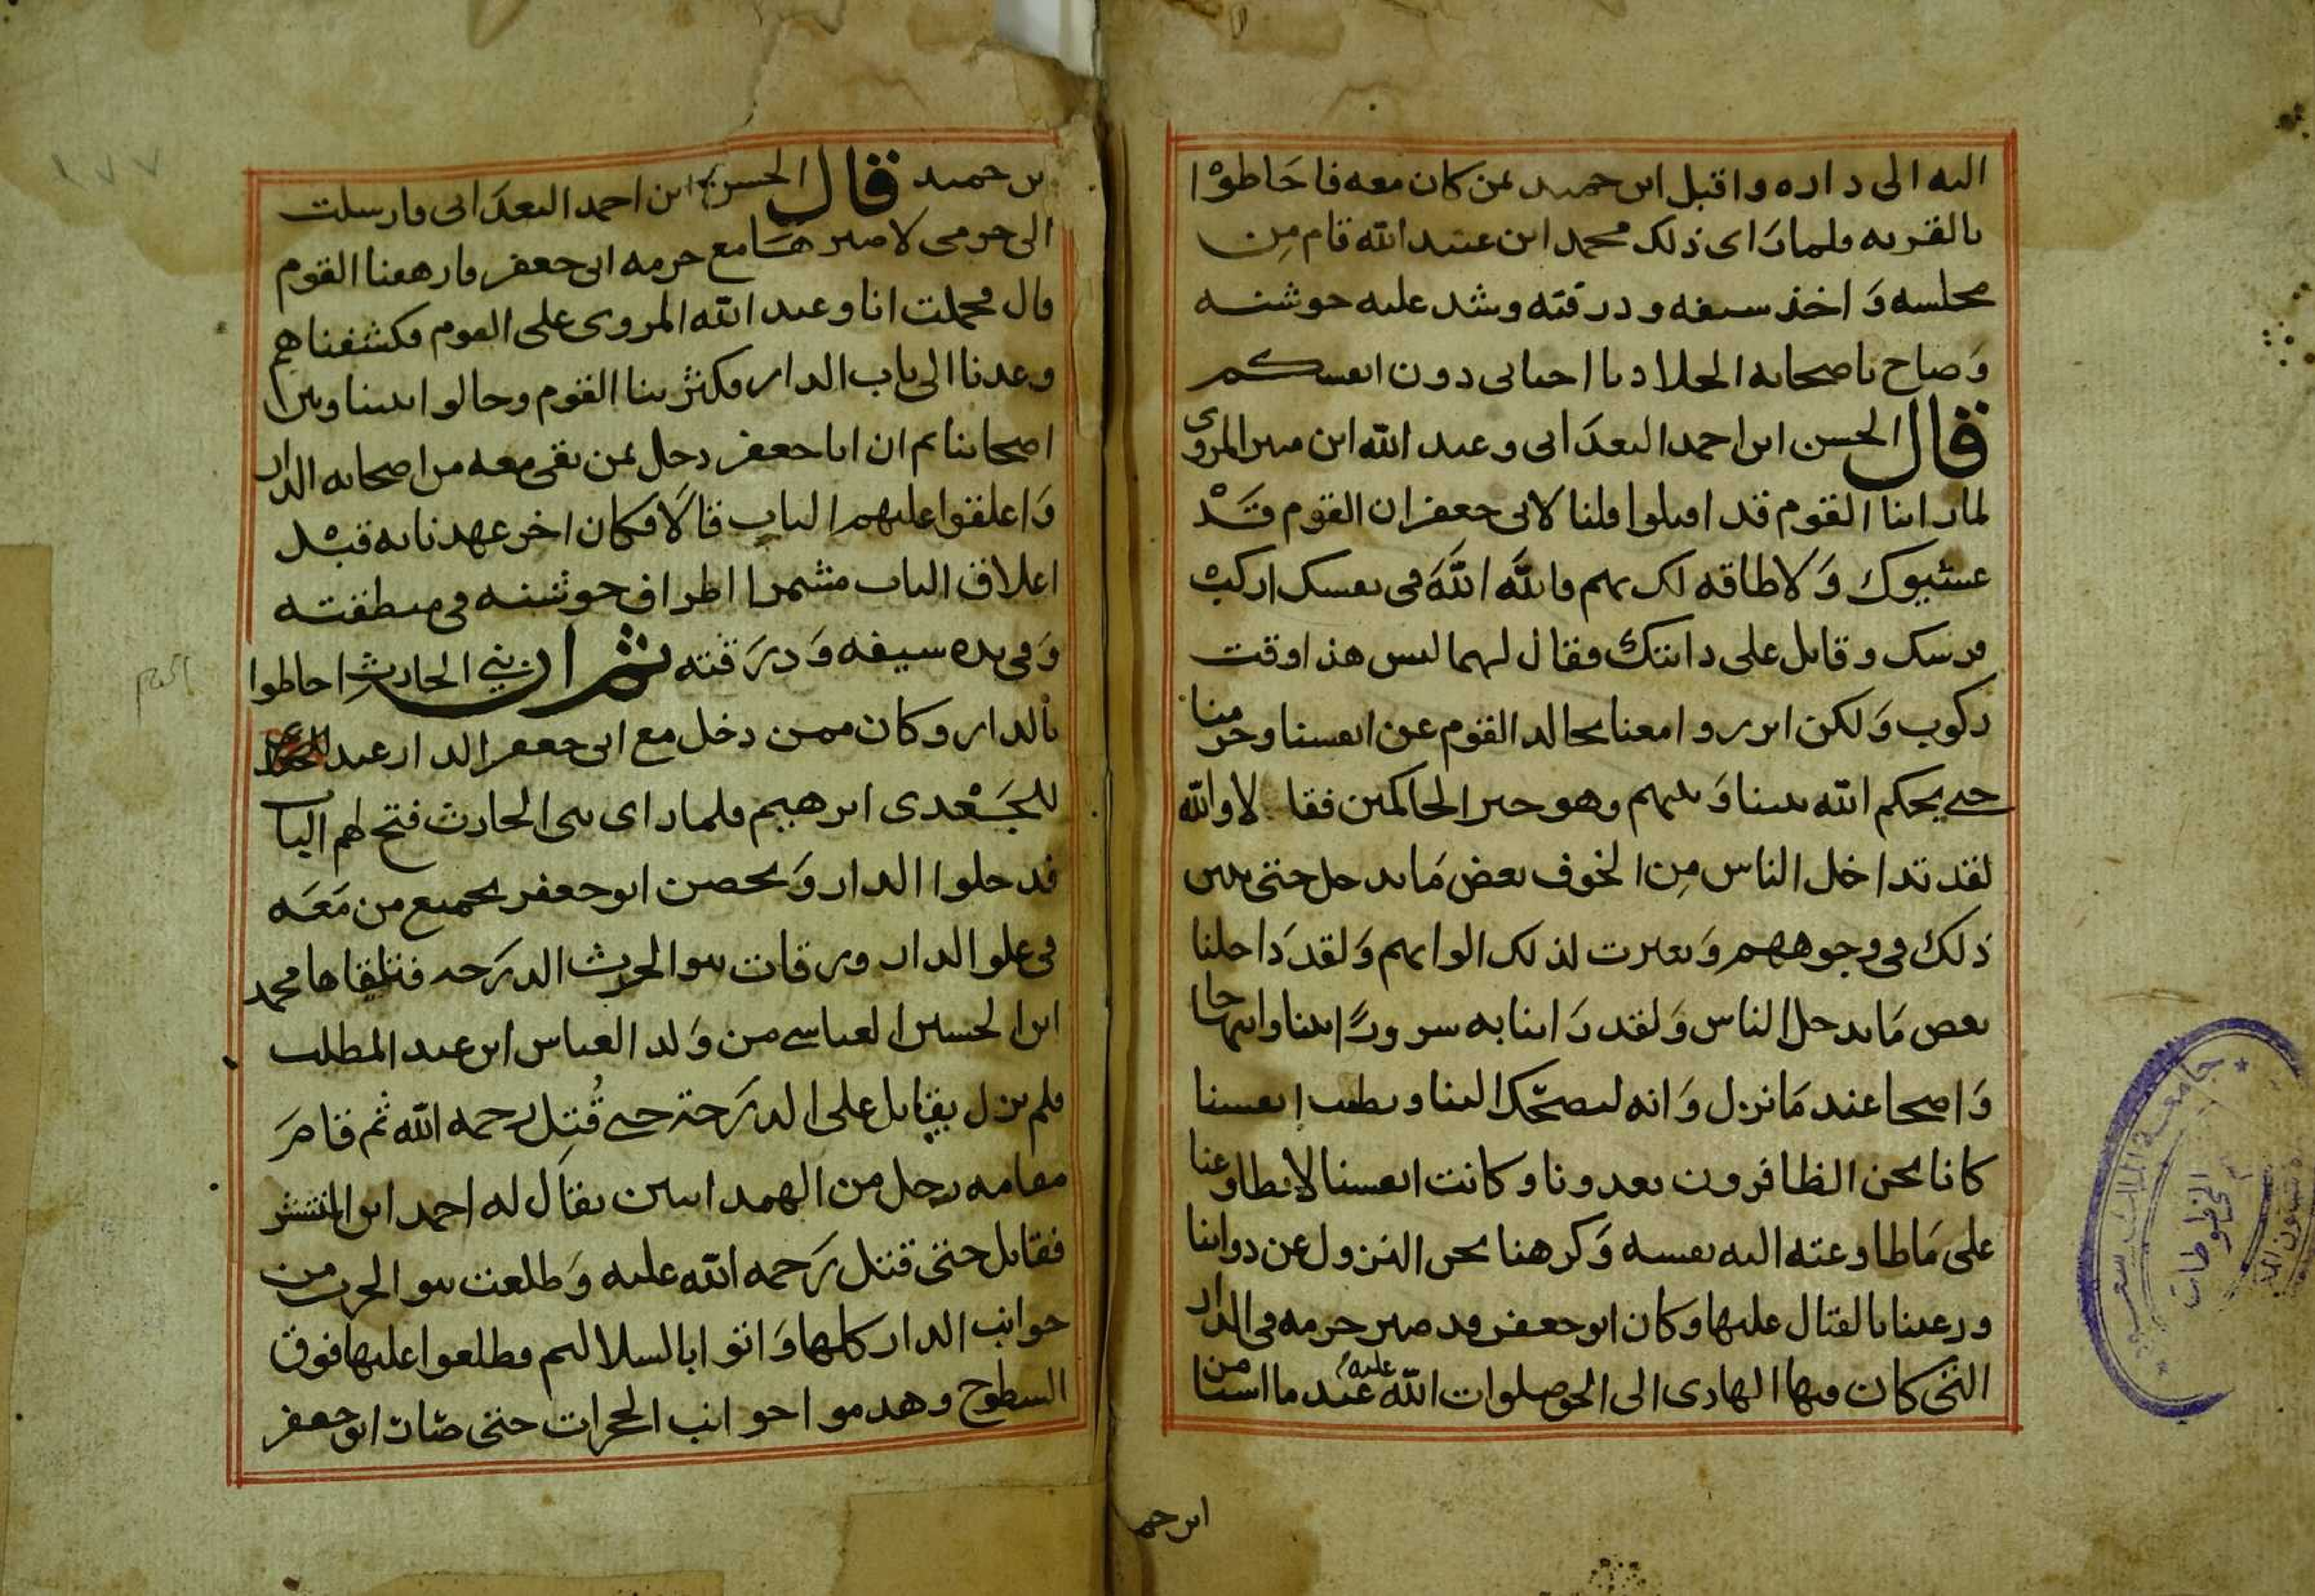 اليه الى داره واقبل ابن حميد بمن كان معه فاحَاطوْا
بالقريه فلما رَاى ذلك محمد ابن عبْد الله قام مِن
مجلسه وَاخذ سيفه ودرقته وشد عليه جوشنه
وَصاح باصحابه الجلاد يا احبابى دون انفسكم
قال الحسن ابن احمد البعدَانى وعبد الله ابن ميسر المروى
لما راينا القوم قد اقبلوا قلنا لابى جعفر ان القوم قَدْ
غشيوك وَلا طاقه لك بهم فاللَّه اللَّهَ فى نفسك اركبْ
فرسك وقاتل على دابتك فقال لهما ليس هذا وقت
ركوب وَلكن ابرروا معنا بجالد القوم عن انفسنا وحرمنا
حتى يحكم الله بيننا وَبينهم وهو خير الحاكمين فقا لا والله
لقد تداخل الناس مِن الخوف بعض مَا يدخل حتى تبين
ذلك فى وجوههم وَتغيرت لذلك الوانهم وَلقد دَاخلنا
بعض مَا يدخل الناس وَلقد رَاينا به سرورًا ابينا وابتهاجا
وَاصحا عند مَا نزل وَانه ليضحّك الينا ويطيب انفسنا
كانا نحن الظافرون بعدونا وكانت انفسنا لا تطاوعنا
على مَا طاوعته اليه نفسه وَكرهنا نحن النزول عن دوابنا
ورغبنا بالقتال عليها وكان ابو جعفر قد صير حرمه فى الدار
التى كان فيها الهادى الى الحق صلوات الله عليه عند ما استامن
ابن حم
ابن حميد قال الحسن ابن احمد البعدَانى فارسلت
الى حرمى لاصيرهَا مع حرمه ابى جعفر فارهقنا القوم
قال فحملت انا وعبد الله المروى على القوم فكشفناهم
وعدنا الى باب الدار فكثر بنا القوم وحالوا بيننا وبين
اصحابنا ثم ان ابا جعفر دخل بمن بقى معه من اصحابه الدار
وَاغلقوا عليهم الباب قالَا فكان اخر عهدنا به قبْل
اغلاق الباب مشمرا اطراف جوشنه فى منطقته
وَفى يده سيفه وَدرَقته ثم ان بني الحارث احاطوا
بالدار وكان ممن دخل مع ابى جعفر الدار عبد
للجَعْدى ابرهيم فلما راى بنى الحارث فتح لهم الباب
فدخلوا الدار وَتحصن ابو جعفر بجميع من مَعَه
فى علو الدار ورقات بنو الحرث الدرَجه فتلقاها محمد
ابن الحسين العباسى من وَلد العباس ابن عبد المطلب
فلم يزل يقاتل على الدرَجة حتى قُتِل رحمه الله ثم قامَ
مقامه رجل من الهمدانيين يقال له احمد ابن المنتشر
فقاتل حتى قتل رَحمه الله عليه وَطلعت بنو الحرث من
جوانب الدار كلها وَاتوا بالسلاليم فطلعوا عليها فوق
السطوح وهدموا جوانب الحجرات حتى صار ابو جعفر